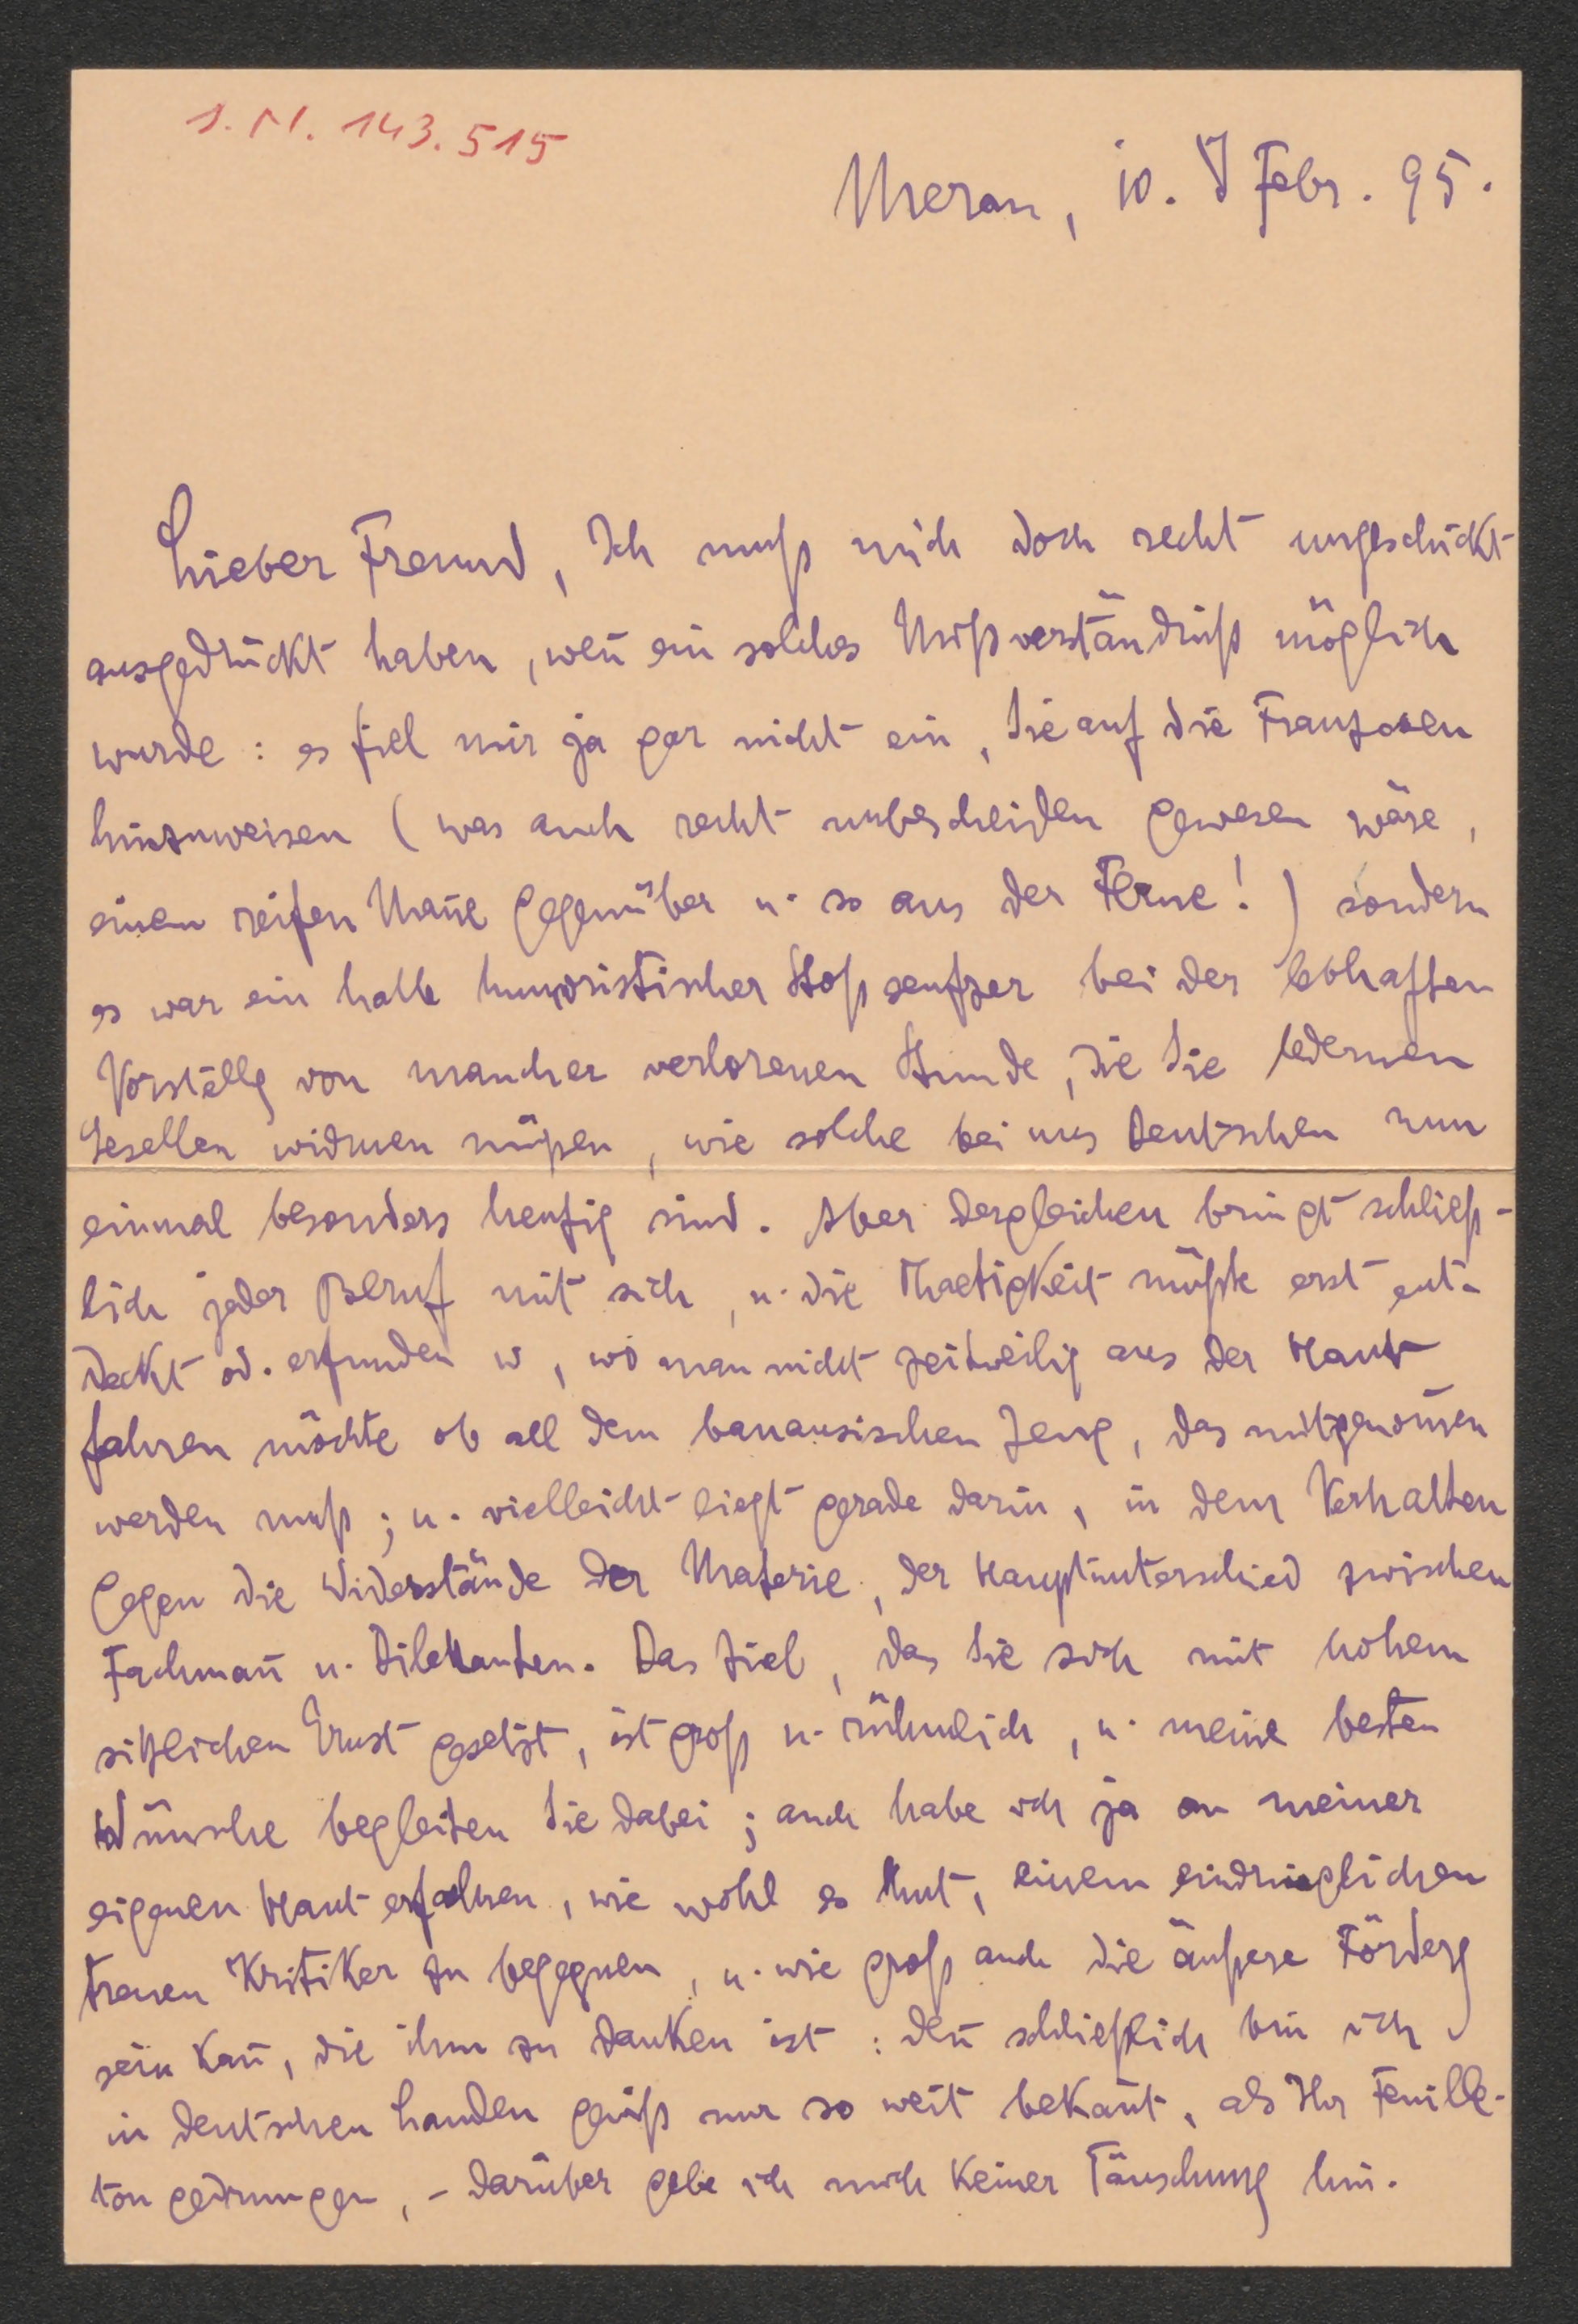 I. N. 143.515
Meran, 10. Febr. 95.
Lieber Freund, Ich muß mich doch recht ungeschickt
ausgedrückt haben, weñ ein solches Mißverständniß möglich
wurde: es fiel mir ja gar nicht ein, Sie auf die Franzosen
hinzuweisen (was auch recht unbescheiden gewesen wäre,
einem reifen Mañe gegenüber u. so aus der Ferne!) sondern
es war ein halb humoristischer Stoßseufzer bei der lebhaften
Vorstellg von mancher verlorenen Stunde, die Sie ledernen
Gesellen widmen müßen, wie solche bei uns Deutschen nun
einmal besonders heufig sind. Aber dergleichen bringt schließ-
lich jeder Beruf mit sich, u. die Thaetigkeit müßte erst ent-
deckt od. erfunden w, wo man nicht zeitweilig aus der Haut
fahren möchte ob all dem banausischen Zeug, das mitgenom̄en
werden muß; u. vielleicht liegt gerade darin, in dem Verhalten
gegen die Widerstände der Materie, der Hauptunterschied zwischen
Fachmañ u. Dilettanten. Das Ziel, das Sie sich mit hohem
sittlichen Ernst gesetzt, ist groß u. rühmlich, u. meine besten
Wünsche begleiten Sie dabei; auch habe ich ja an meiner
eigenen Haut erfahren, wie wohl es thut, einem eindringlichen
treuen Kritiker zu begegnen, u. wie groß auch die äußere Förderg
sein kañ, die ihm zu danken ist: deñ schließlich bin ich
in deutschen Landen gewiß nur so weit bekañt, als Ihr Feuille-
ton gedrungen, – darüber gebe ich mich keiner Täuschung hin.